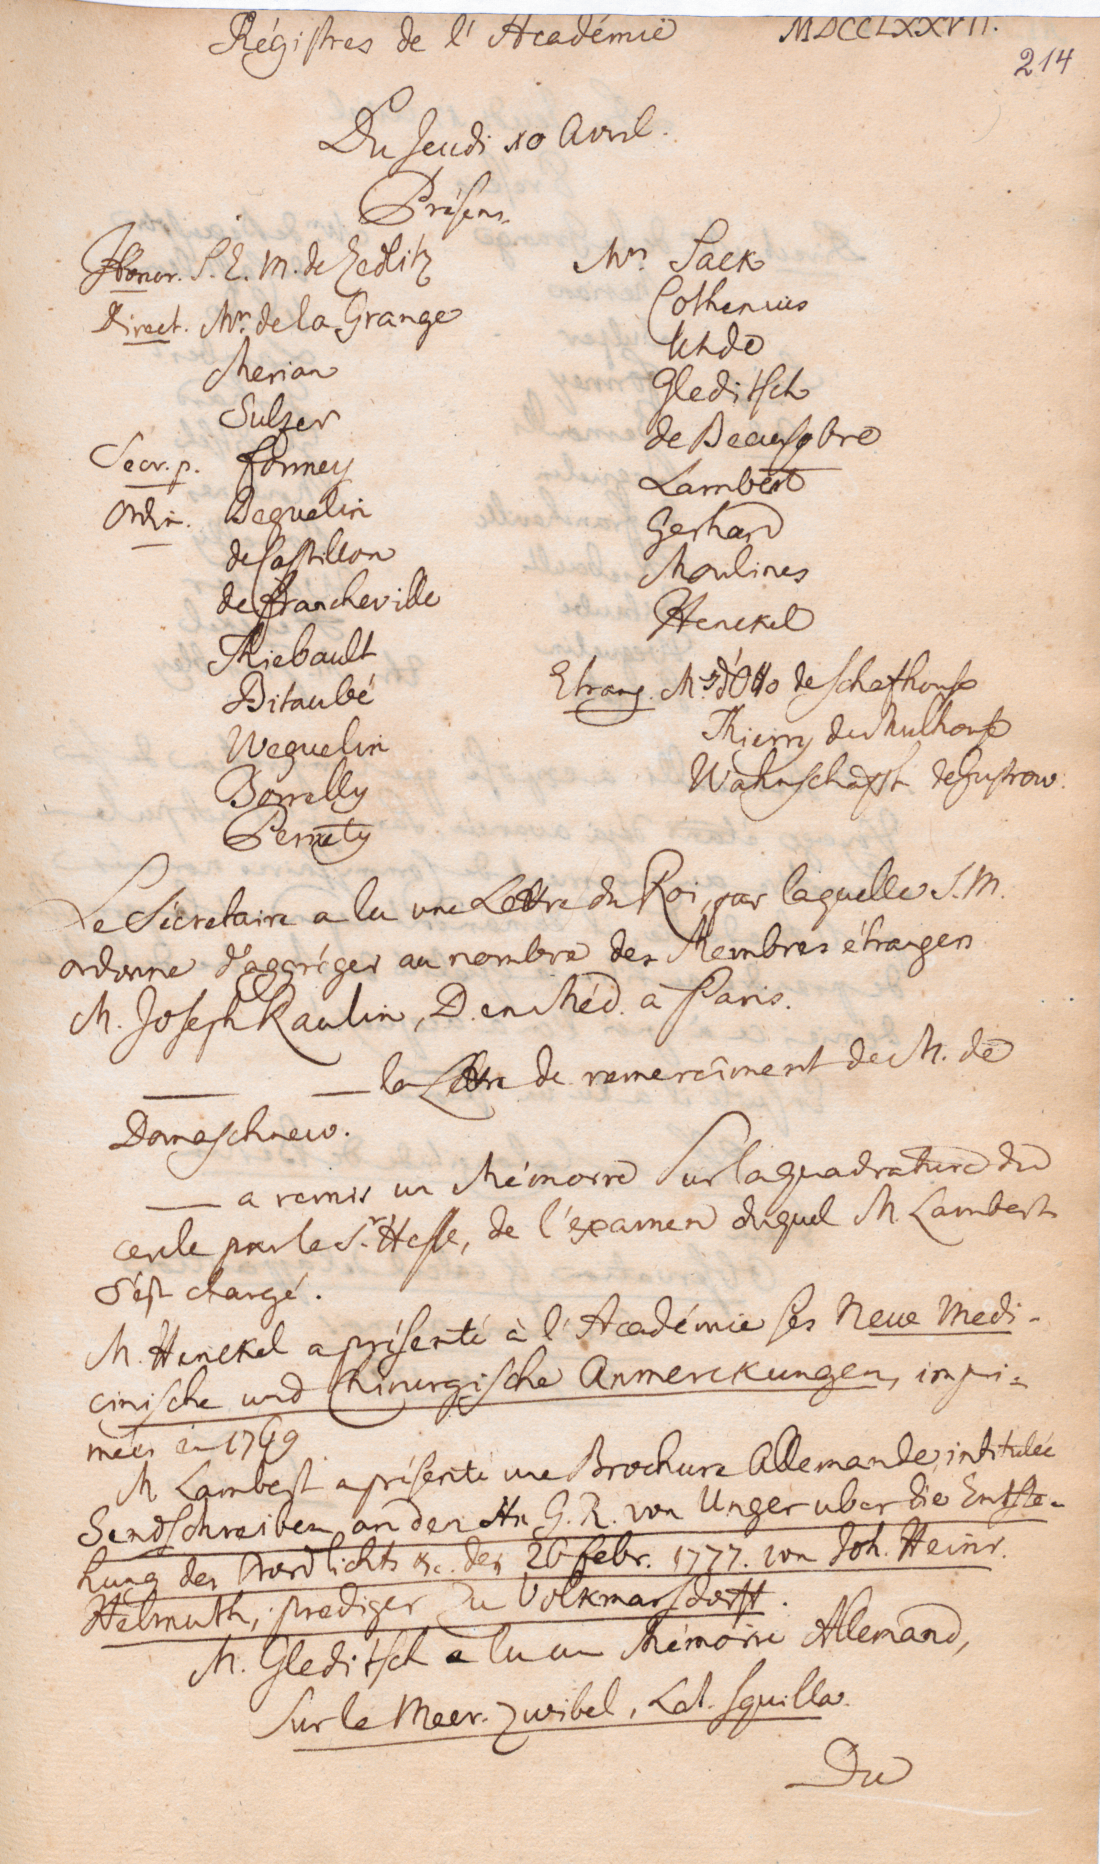 Régistres de l'Académie MDCCLXXVII.
214
Du Jeudi 10 Avril.
Présens.
Honor. S. E. M. de Zedlitz
Direct. Mr. de la Grange
Merian
Sulzer
Secr. p. Formey
Ordin. Beguelin
de Castillon
de Francheville
Thiebault
Bitaubé
Weguelin
Borrelly
Pernety
Mrs. Sack
Cothenius
Uhde
Gleditsch
de Beausobre
Lambert
Gerhard
Moulines
Henckel
Etrang. Mrs. d'Otto de Schafhouse
Thierry de Mulhouse
Wahnschafft de Gustrow.
Le Sécretaire a lu une Lettre du Roi, par laquelle S. M.
ordonne d'aggréger au nombre des Membres étrangers
M. Joseph Raulin, D. en Méd. à Paris.
— — la Lettre de remercîment de M. de
Domaschnew.
— a remis un Mémoire sur la quadrature du
cercle par le Sr. Hesse, de l'examen duquel M. Lambert
s'est chargé.
M. Henckel a présenté à l'Académie ses Neue Medi-
cinische und Chirurgische Anmerckungen, impri-
mées en 1769
M Lambert a présenté une Brochure Allemande, intitulée
Sendschreiben an den Hn G. R. von Unger uber die Entste-
hung des Nordlichts &c. den 26 febr. 1777. von Joh. Heinr.
Helmuth, prediger zu Volkmarsdorff.
M. Gleditsch a lu un Mémoire Allemand,
sur le Meer-zwibel, Lat. squilla.
Du